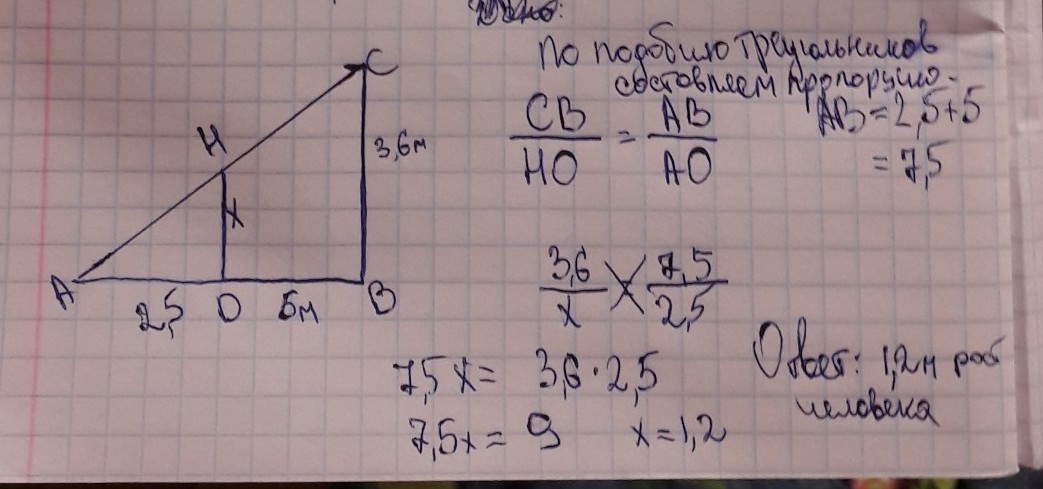 По подобию треугольников
составляем пропорцию.
CB/HO = AB/AO
AB = 2,5+5
= 7,5
C
H
3,6м
x
A
2,5
O
5м
B
3,6/x 7,5/2,5
7,5x = 3,6·2,5
7,5x = 9 x=1,2
Ответ: 1,2м рост
человека